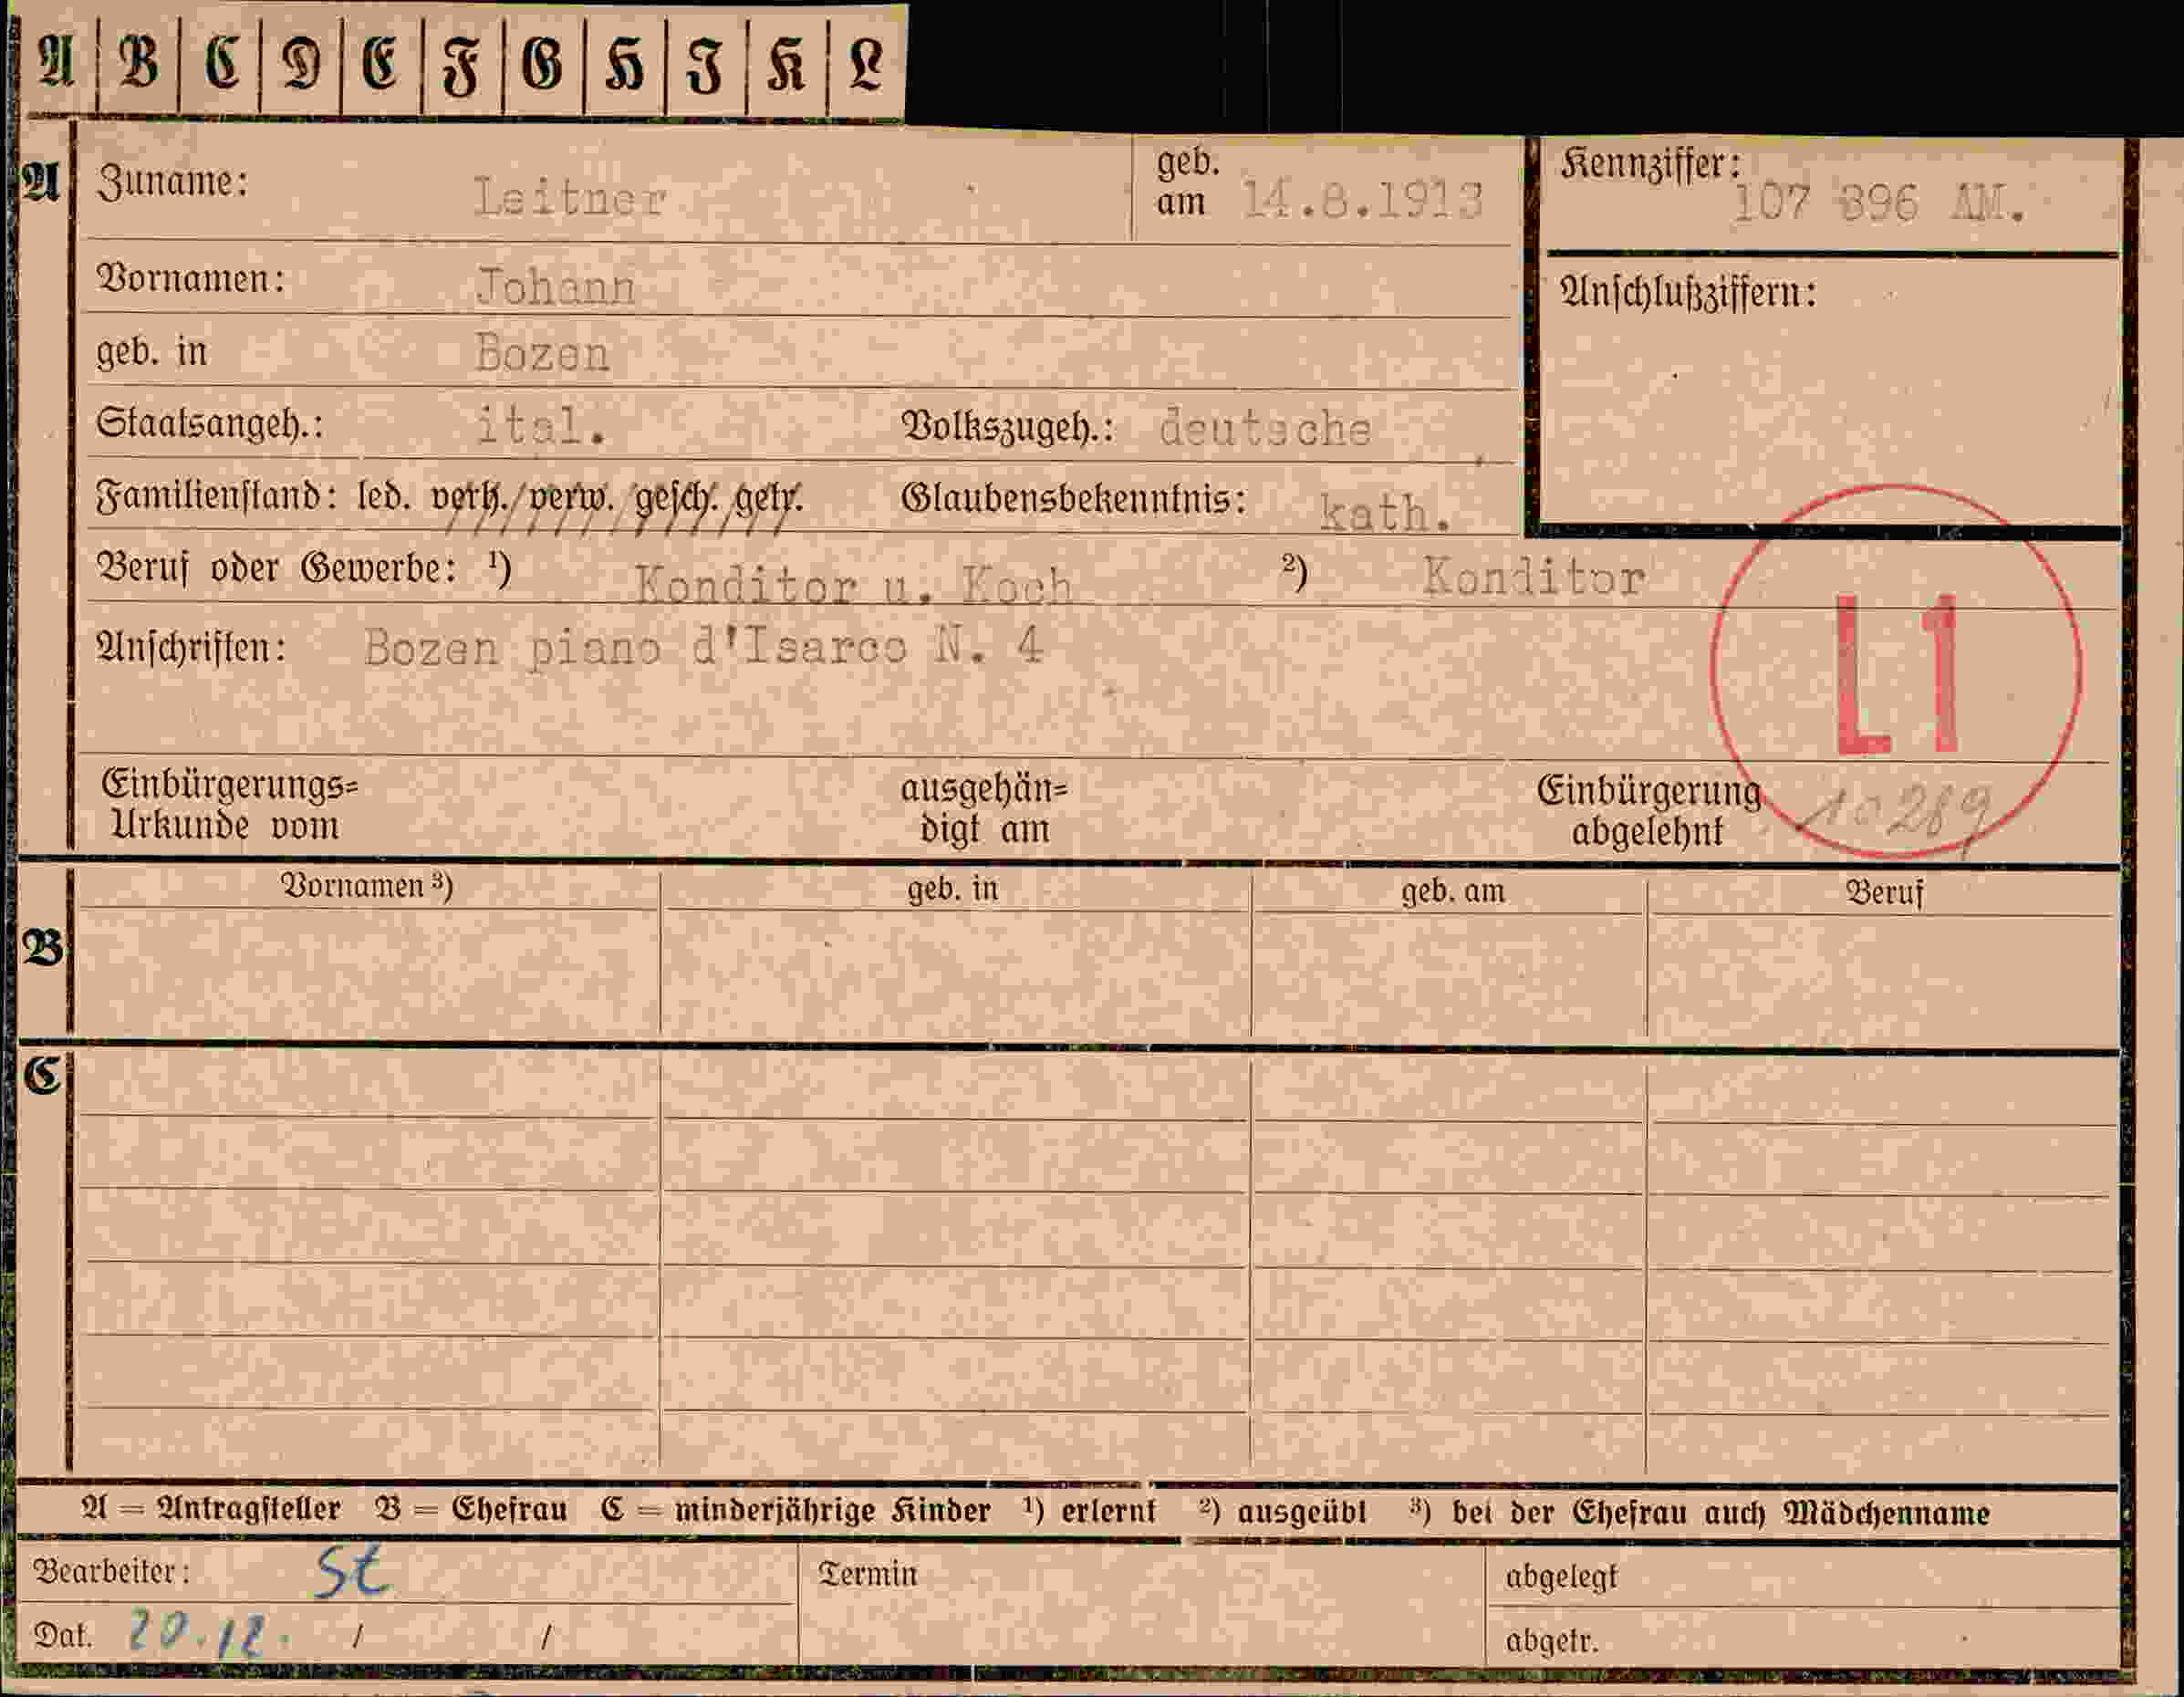 A B C D E F G H I K L
A Zuname: Leitner geb. am 14.8.1913 Kennziffer: 107 896 AM.
Vornamen: Johann Anschlußziffern:
geb. in Bozen
Staatsangeh.: ital. Volkszugeh.: deutsche
Familienstand: led. verh. verw. gesch. getr. Glaubensbekenntnis: kath.
Beruf oder Gewerbe: ¹) Konditor u. Koch ²) Konditor
Anschriften: Bozen piano d'Isarco N. 4
L1
Einbürgerungs= ausgehän= Einbürgerung 10289
Urkunde vom digt am abgelehnt
Vornamen ³) geb. in geb. am Beruf
B
C
A = Antragsteller B = Ehefrau C = minderjährige Kinder ¹) erlernt ²) ausgeübt ³) bei der Ehefrau auch Mädchenname
Bearbeiter: St Termin abgelegt
Dat. 20.12. / / abgetr.